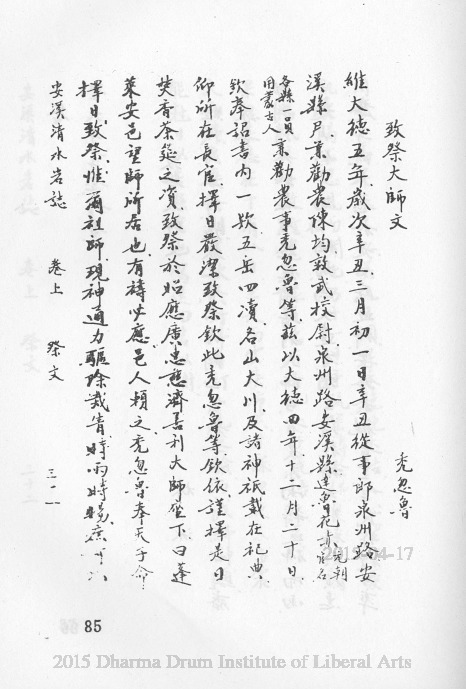 致祭大師文
禿忽魯
維大德五年歲次辛丑三月初一日辛丑從事郎泉州路安
溪縣尹兼勸農陳均敦武校尉泉州路安溪縣達魯花赤元朝官名
各縣一員用蒙古人兼勸農事禿忽魯等茲以大德四年十二月二十日
欽奉詔書內一款五岳四瀆名山大川及諸神祇載在祀典
仰所在長官擇日嚴潔致祭欽此禿忽魯等欽依謹擇是日
焚香茶筵之資致祭於昭應廣惠慈濟善利大師坐下曰蓬
萊安邑望師所居也有禱必應邑人賴之禿忽魯奉天子命
擇日致祭惟爾社師現神通力驅除災眚時雨時暘
安溪清水岩誌 卷上 祭文
85
2015 Dharma Drum Institute of Liberal Arts